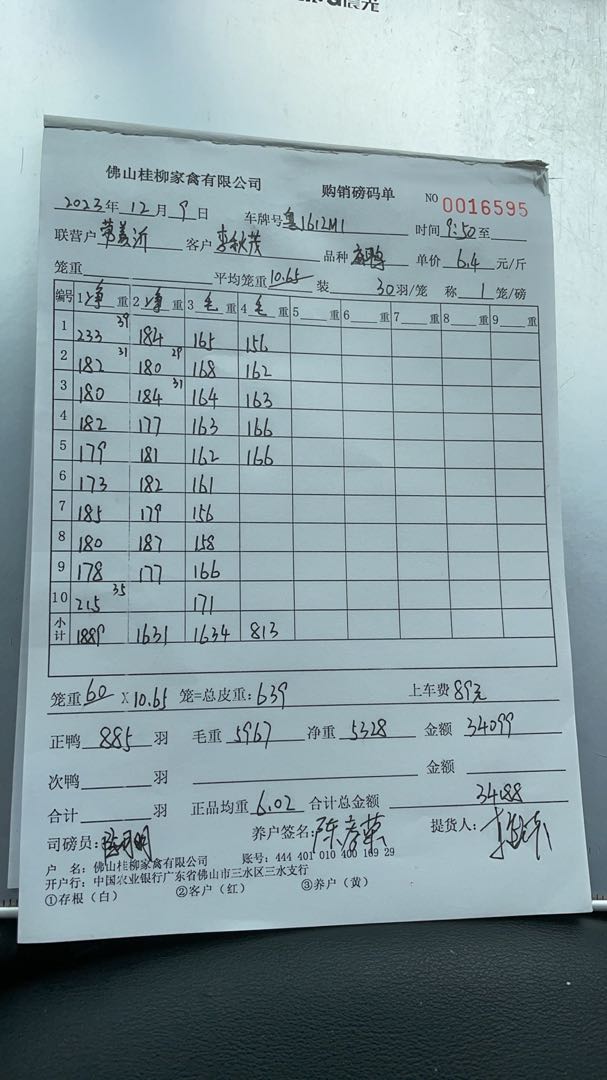 晨光
佛山桂柳家禽有限公司 购销磅码单 NO 0016595
2023年 12月 9日 车牌号 粤1612M1 时间 9:50 至
联营户 客户 李秋茂 品种 单价 6.4 元/斤
笼重 平均笼重 10.65 装 30 羽/笼 称 1 笼/磅
编号 1 净 重 2 净 重 3 毛 重 4 毛 重 5 重 6 重 7 重 8 重 9 重
1 233 39 184 165 156
2 182 31 180 29 168 162
3 180 184 31 164 163
4 182 177 163 166
5 179 181 162 166
6 173 182 161
7 185 179 156
8 180 187 158
9 178 177 166
10 215 35 171
小计 1889 1631 1634 813
笼重 60 X 10.65 笼=总皮重: 639 上车费 89元
正鸭 885 羽 毛重 5967 净重 5328 金额 34099
次鸭 羽 金额
合计 羽 正品均重 6.02 合计总金额 34188
司磅员: 养户签名: 提货人:
户 名: 佛山桂柳家禽有限公司 账号: 444 401 010 400 169 29
开户行: 中国农业银行广东省佛山市三水区三水支行
①存根（白） ②客户（红） ③养户（黄）